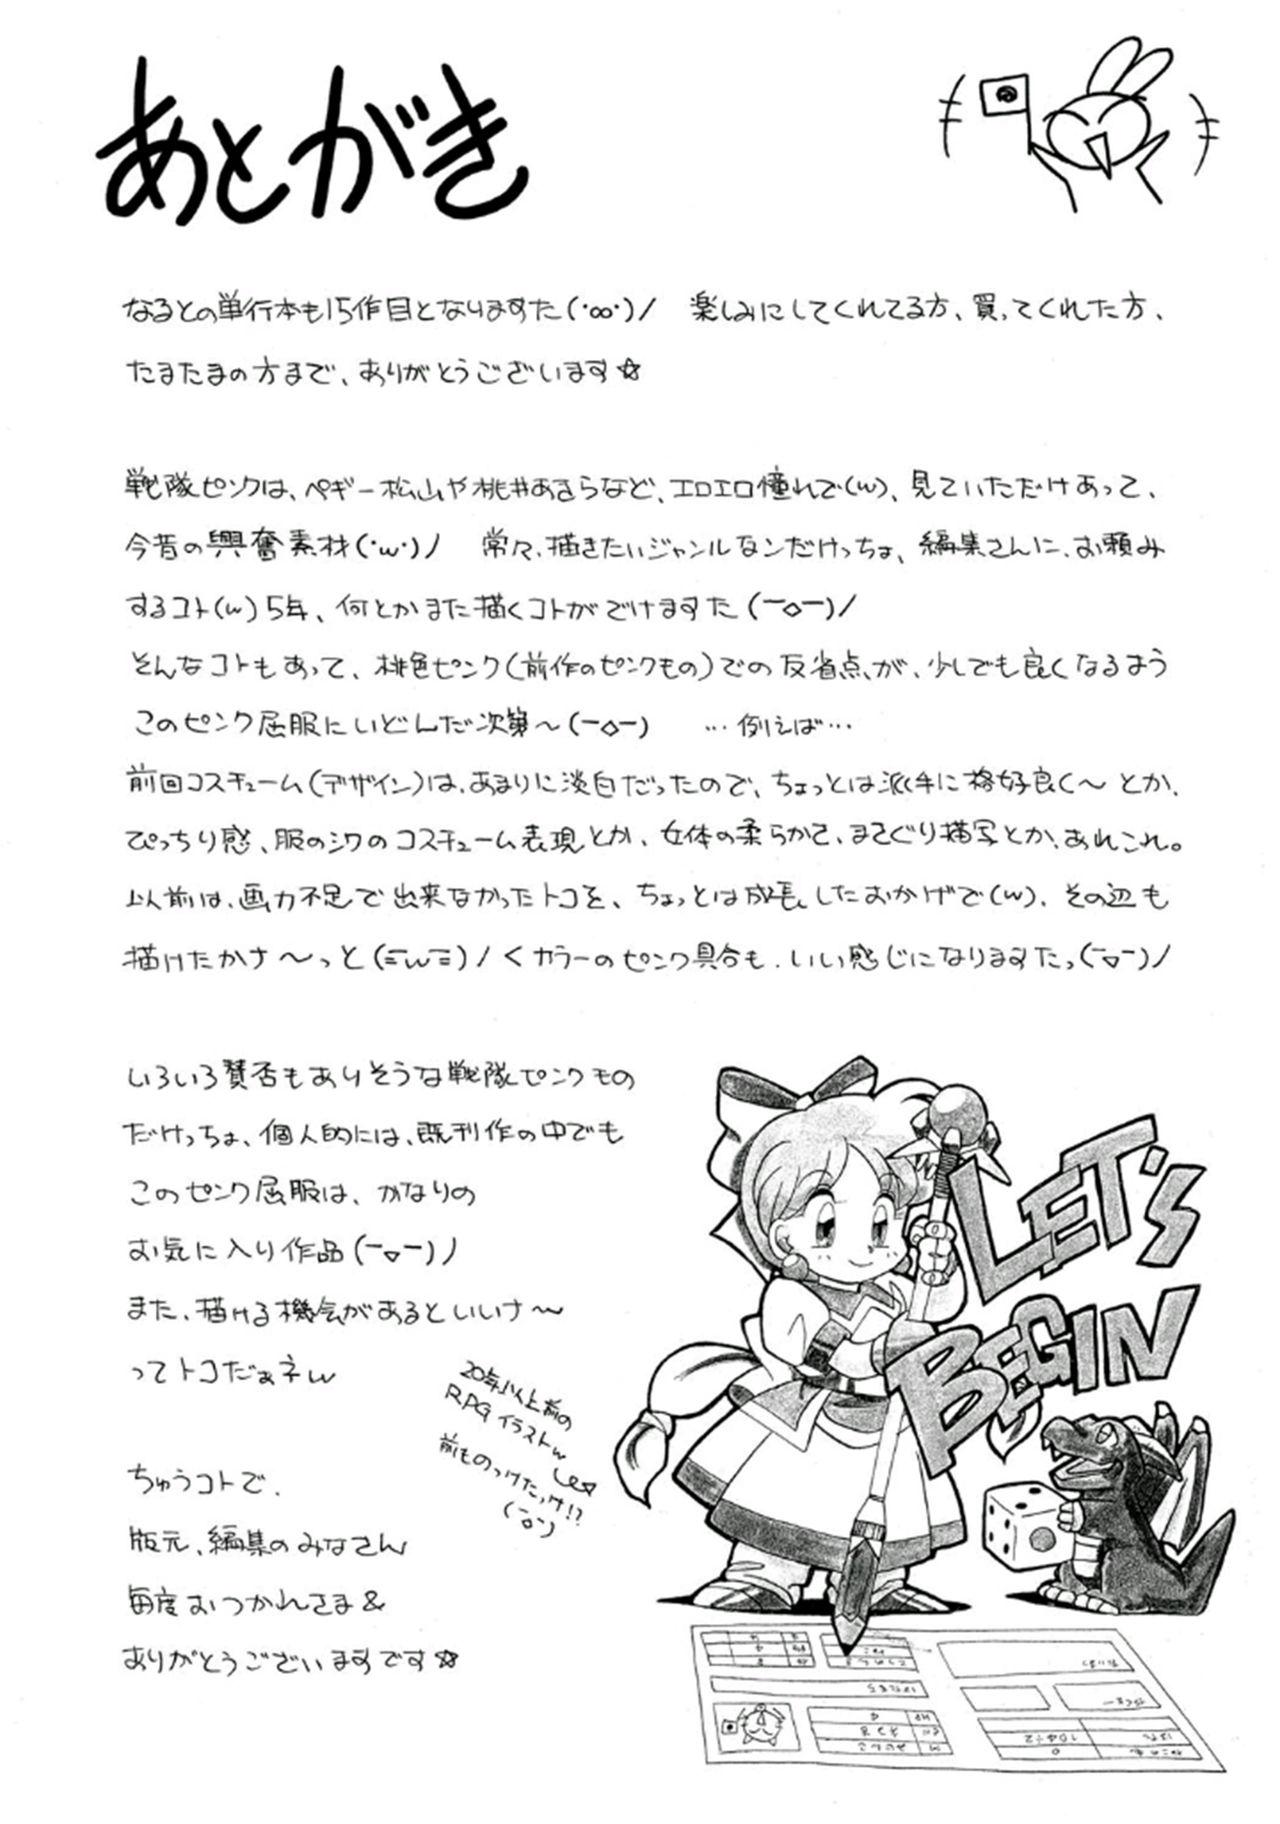 あとがき
なるとの単行本も15作目となりますた(･∞･)/　楽しみにしてくれてる方、買ってくれた方、
たまたまの方まで、ありがとうございます☆
戦隊ピンクは、ペギー松山や桃井あきらなど、エロエロ憧れで(w)、見ていただけあって、
今昔の興奮素材(･w･)ﾉ　常々、描きたいジャンルなンだけっちょ、編集さんに、お頼み
するコト(w)5年、何とかまた描くコトができますた(￣◇￣)/
そんなコトもあって、桃色ピンク(前作のピンクもの)での反省点が、少しでも良くなるよう
このピンク屈服にいどんだ次第〜(￣◇￣)　…例えば…
前回コスチューム(デザイン)は、あまりに淡白だったので、ちょっとは派手に格好良く〜とか、
ぴっちり感、服のシワのコスチューム表現とか、女体の柔らかさ、まさぐり描写とか、あれこれ。
以前は、画力不足で出来なかったトコを、ちょっとは成長したおかげで(w)、その辺も
描けたかナ〜っと(≡w≡)/くカラーのピンク具合も、いい感じになりますたっ(￣▽￣)/
いろいろ賛否もありそうな戦隊ピンクもの
だけっちょ、個人的には、既刊作の中でも
このピンク屈服は、かなりの
お気に入り作品(￣▽￣)ノ
また、描ける機会があるといいナ〜
ってトコだぁネw
20年以上前の
RPGイラストw
前ものっけたっけ!?
(￣o￣)
ちゅうコトで、
版元、編集のみなさん
毎度おつかれさま&
ありがとうございますです☆
LET'S
BEGIN